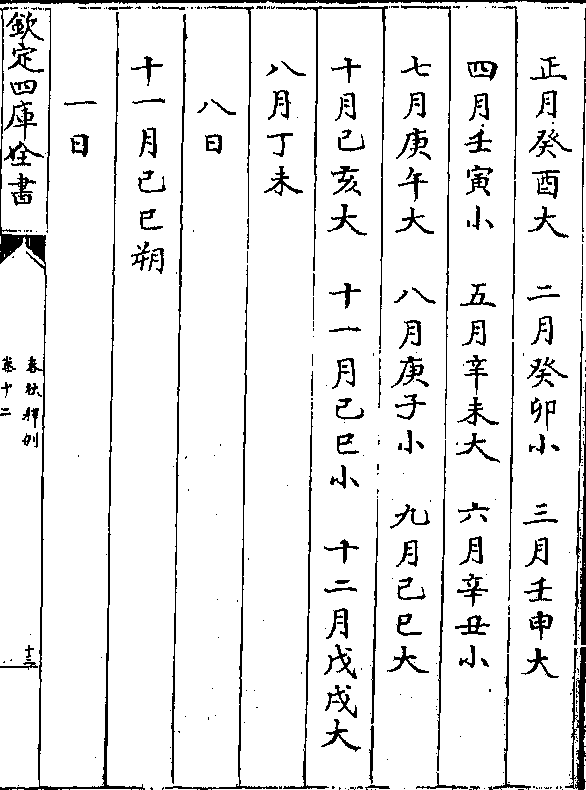 正月癸酉大 二月癸卯小 三月壬申大
四月壬寅小 五月辛未大 六月辛丑小
七月庚午大 八月庚子小 九月己巳大
十月己亥大 十一月己巳小 十二月戊戌大
八月丁未
八日
十一月己巳朔
一日
欽定四庫全書
春秋釋例
卷十二
十三